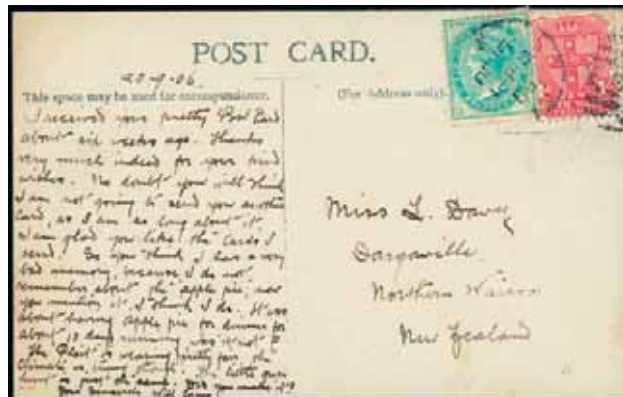 POST CARD.
20-9-06.
This space may be used for correspondence.
(For Address only).
I received your pretty Post Card
about six weeks ago. Thanks
very much indeed for your kind
wishes. No doubt you will think
I am not going to send you another
Card, as I am so long about it.
I am glad you like the Cards I
send. So you think I has a very
bad memory, because I do not
remember about the apple pie; now
you mention it, I think I do. It was
about having apple pie for dinner for
about days running was it not?
The is wearing pretty fair, the
is just the same.
Miss L. Davy
Dargaville
Northern Wairoa
New Zealand